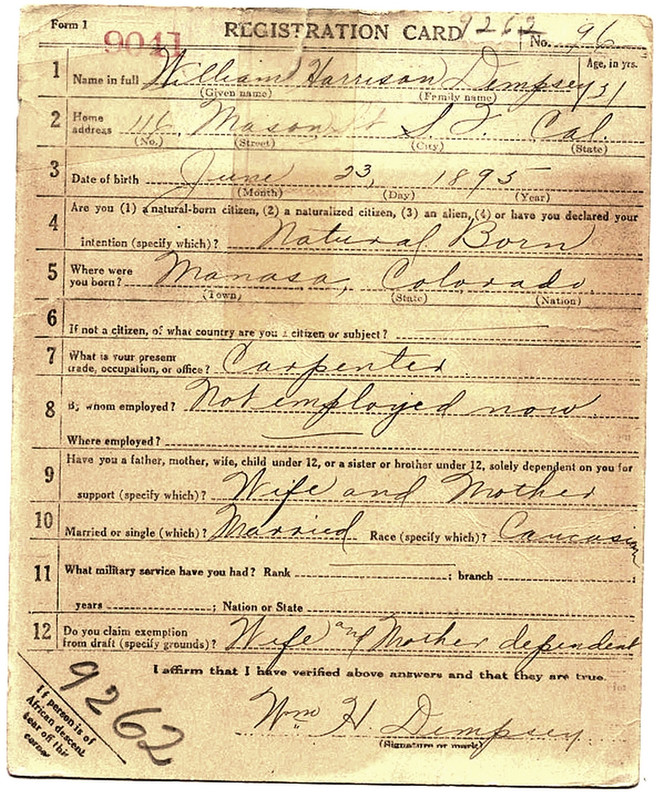 Form 1 9041 REGISTRATION CARD 9262 No. 96
1 Name in full William Harrison Dempsey Age, in yrs. 31
(Given name) (Family name)
2 Home address 116 Mason St S. F. Cal.
(No.) (Street) (City) (State)
3 Date of birth June 23, 1895
(Month) (Day) (Year)
4 Are you (1) a natural-born citizen, (2) a naturalized citizen, (3) an alien, (4) or have you declared your
intention (specify which)? Natural Born
5 Where were you born? Manasa, Colorado
(Town) (State) (Nation)
6 If not a citizen, of what country are you a citizen or subject?
7 What is your present trade, occupation, or office? Carpenter
8 By whom employed? Not employed now.
Where employed?
9 Have you a father, mother, wife, child under 12, or a sister or brother under 12, solely dependent on you for
support (specify which)? Wife and Mother
10 Married or single (which)? Married Race (specify which)? Caucasian
11 What military service have you had? Rank ; branch ;
years ; Nation or State
12 Do you claim exemption from draft (specify grounds)? Wife and Mother dependent
I affirm that I have verified above answers and that they are true.
9262
If person is of
African descent
tear off this
corner
Wm H. Dempsey
(Signature or mark)